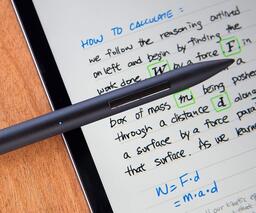 HOW TO CALCULATE:
we follow the reasoning outlined
on left and begin by finding the
work done W by a force F
box of mass m being pushed
through a distance d along
a surface by a force para
that surface. As we learn
W = F·d
= m·a·d